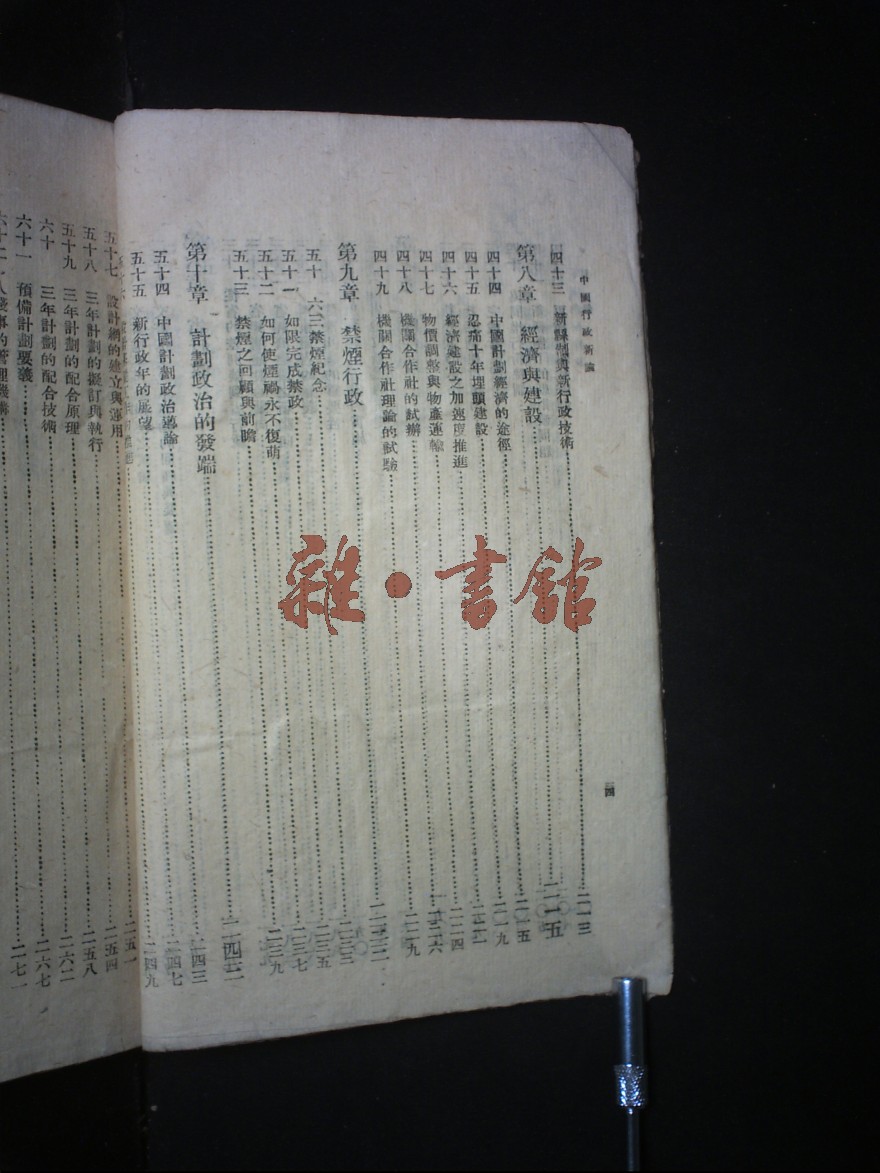 中國行政新論
四十三 新縣制與新行政技術……二一三
第八章 經濟與建設……二一五
四十四 中國計劃經濟的途徑……二一五
四十五 忍痛十年埋頭建設……二一九
四十六 經濟建設之加速度推進……二二二
四十七 物價調整與物產運輸……二二四
四十八 機關合作社的試辦……二二六
四十九 機關合作社理論的試驗……二二九
第九章 禁煙行政……二三三
五十 六三禁煙紀念……二三三
五十一 如限完成禁政……二三五
五十二 如何使煙禍永不復萌……二三七
五十三 禁煙之回顧與前瞻……二三九
第十章 計劃政治的發端……二四三
五十四 中國計劃政治導論……二四三
五十五 新行政年的展望……二四七
……二四九
五十七 設計網的建立與運用……二五一
五十八 三年計劃的擬訂與執行……二五四
五十九 三年計劃的配合原理……二五八
六十 三年計劃的配合技術……二六二
六十一 預備計劃要義……二六七
六十二 人錢事的管理機構……二七一
雜·書館